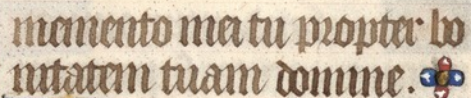 memento mei tu propter bo
nitatem tuam domine.